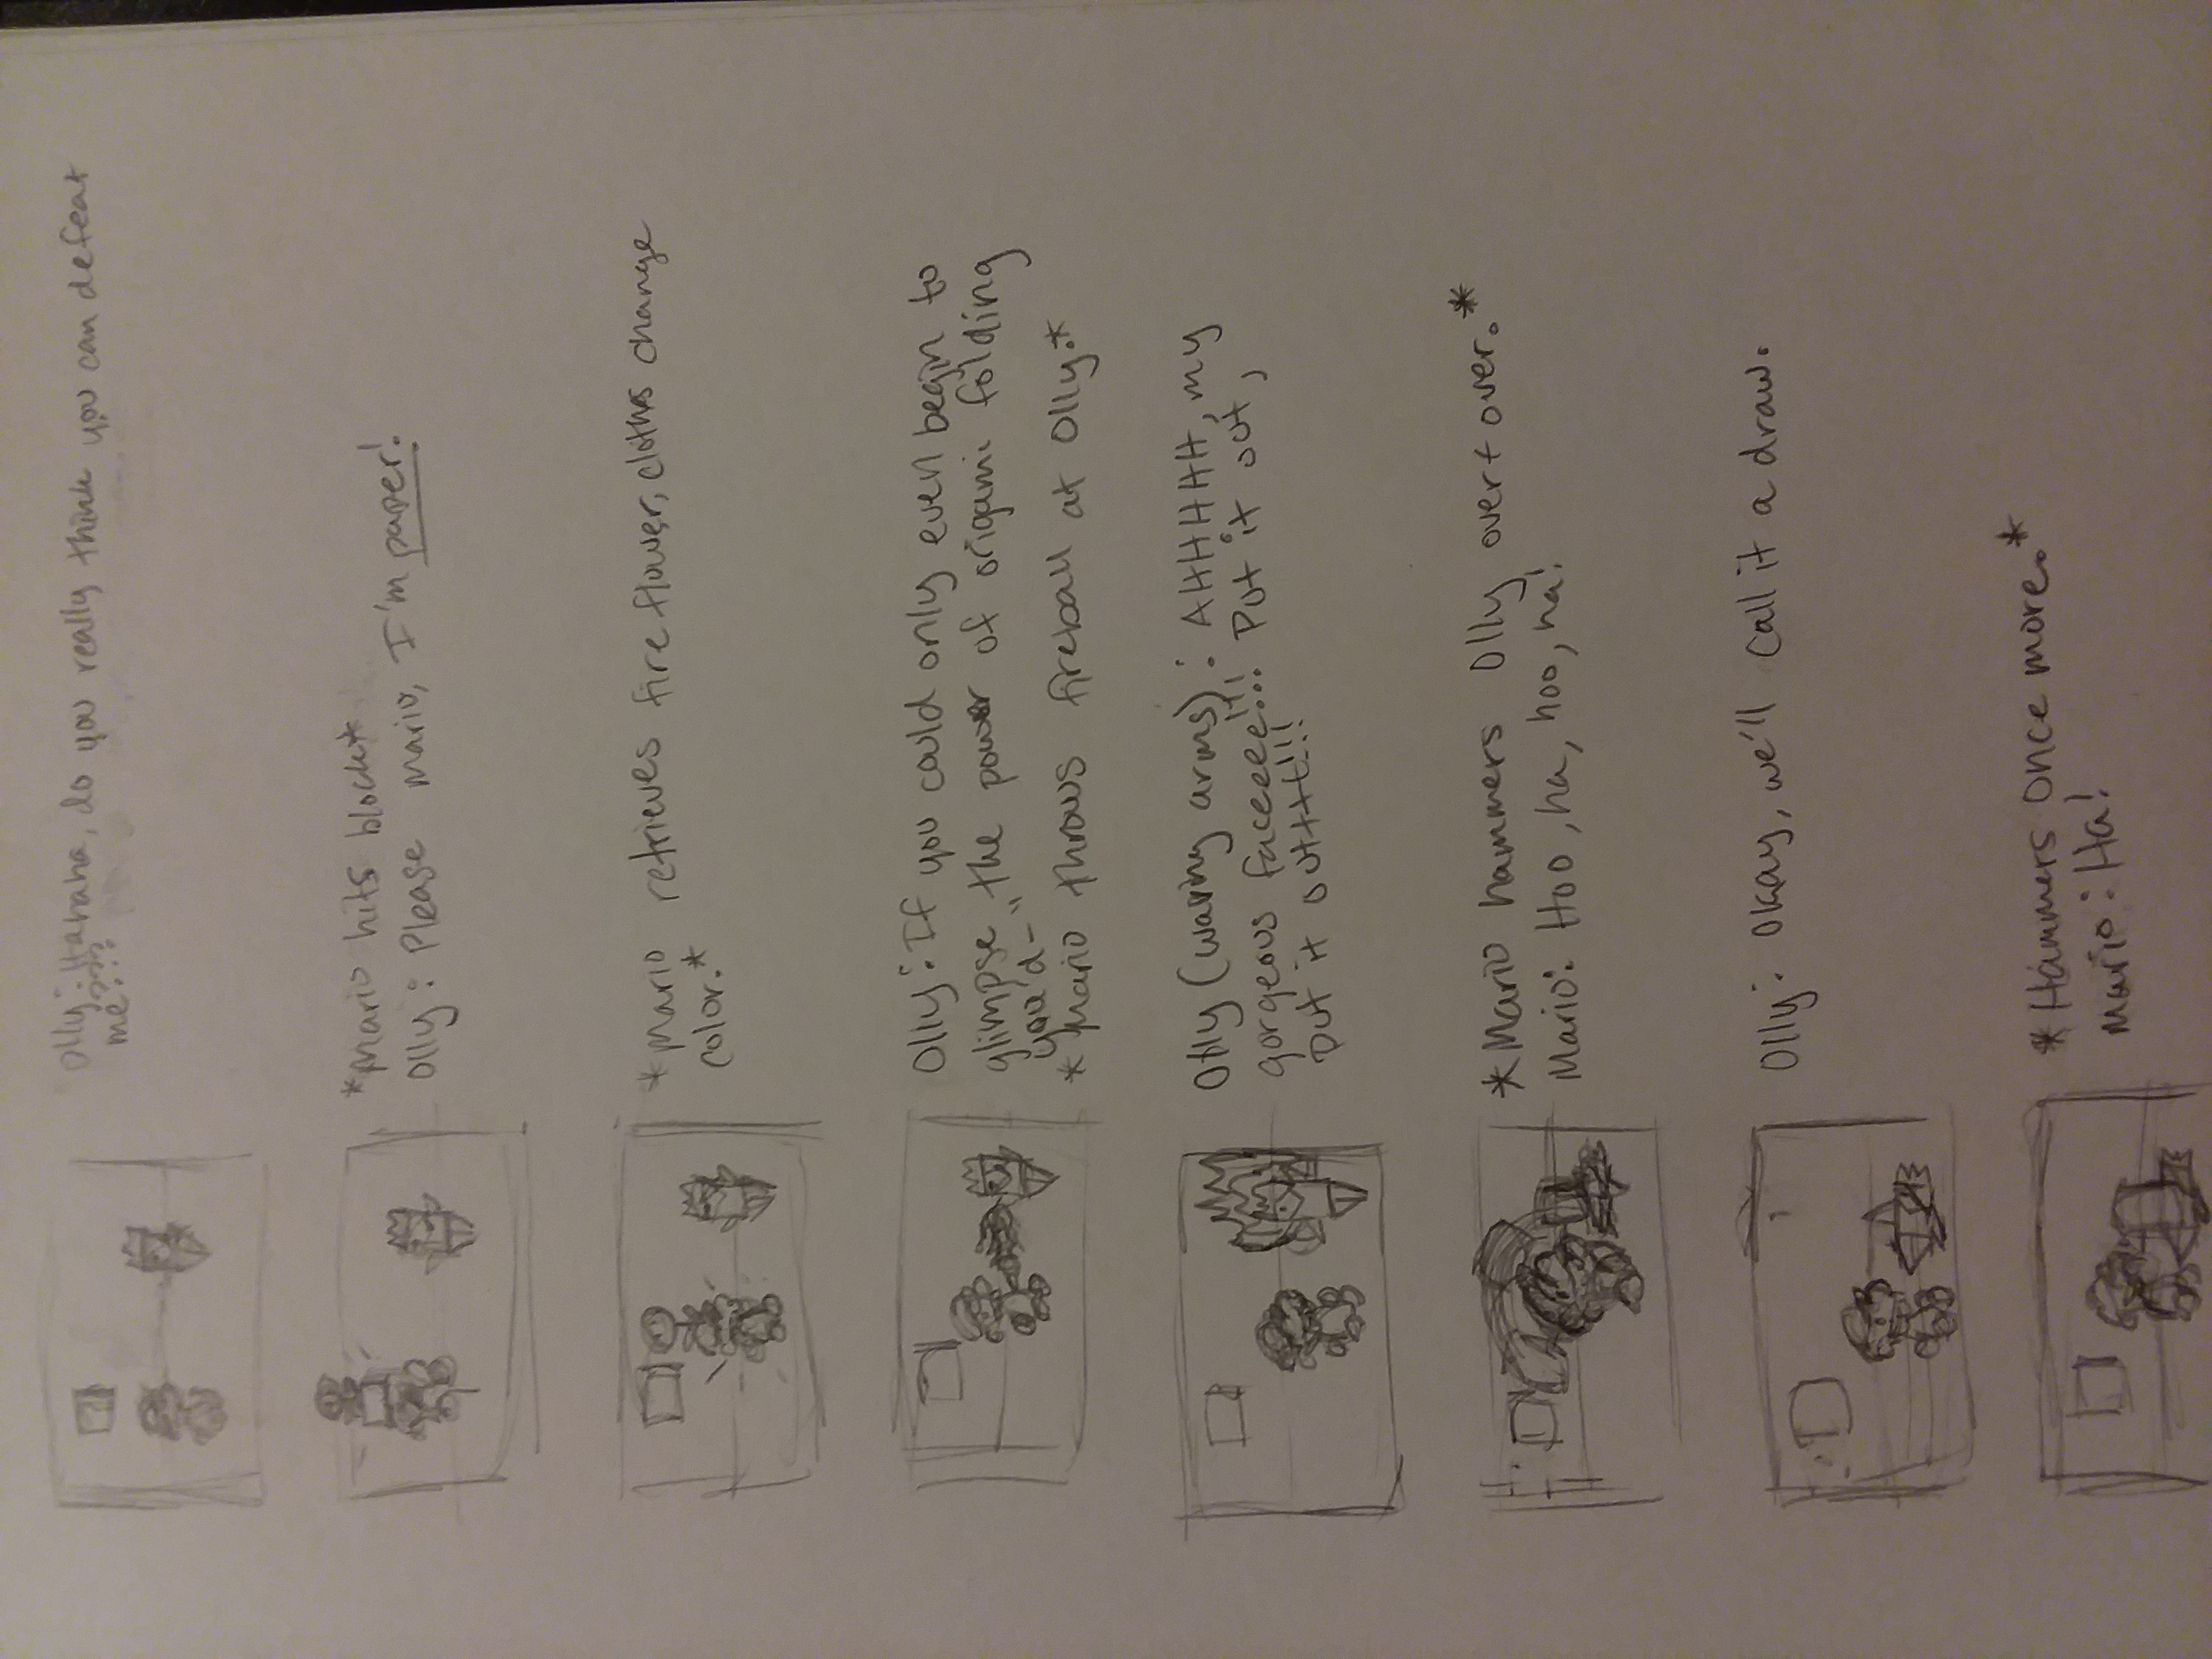 Olly: Hahaha, do you really think you can defeat
me???
*Mario hits block*
Olly: Please Mario, I'm paper!
*Mario retrieves fire flower, clothes change
color.*
Olly: If you could only even begin to
glimpse the power of origami folding
you'd-"
*Mario throws fireball at Olly.*
Olly (waving arms): AHHHHH, my
gorgeous faceeee!!! Put it out,
put it outttt!!!
*Mario hammers Olly over + over.*
Mario: Hoo, ha, hoo, ha!
Olly: Okay, we'll call it a draw.
*Hammers once more.*
Mario: Ha!